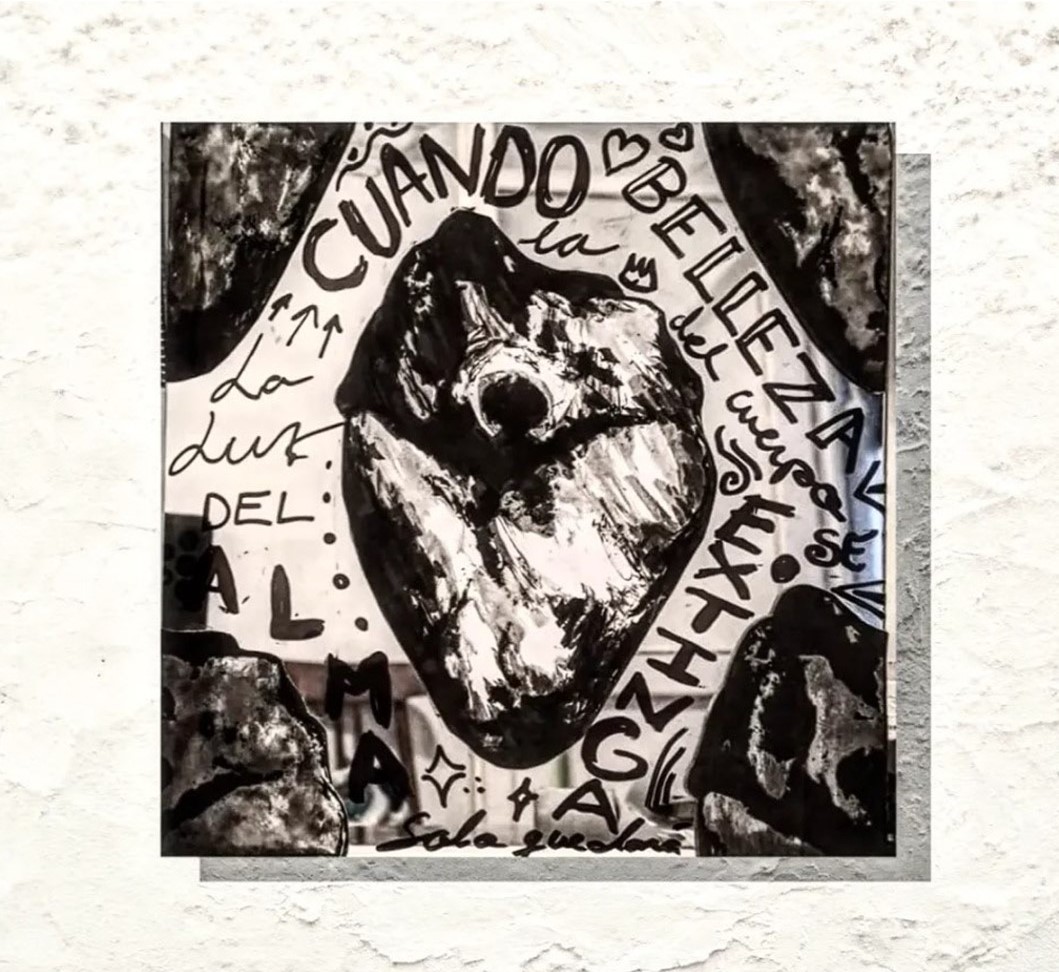 CUANDO
la
BELLEZA
del cuerpo
SE
EXTINGA
Solo quedará
La
Luz
DEL
ALMA